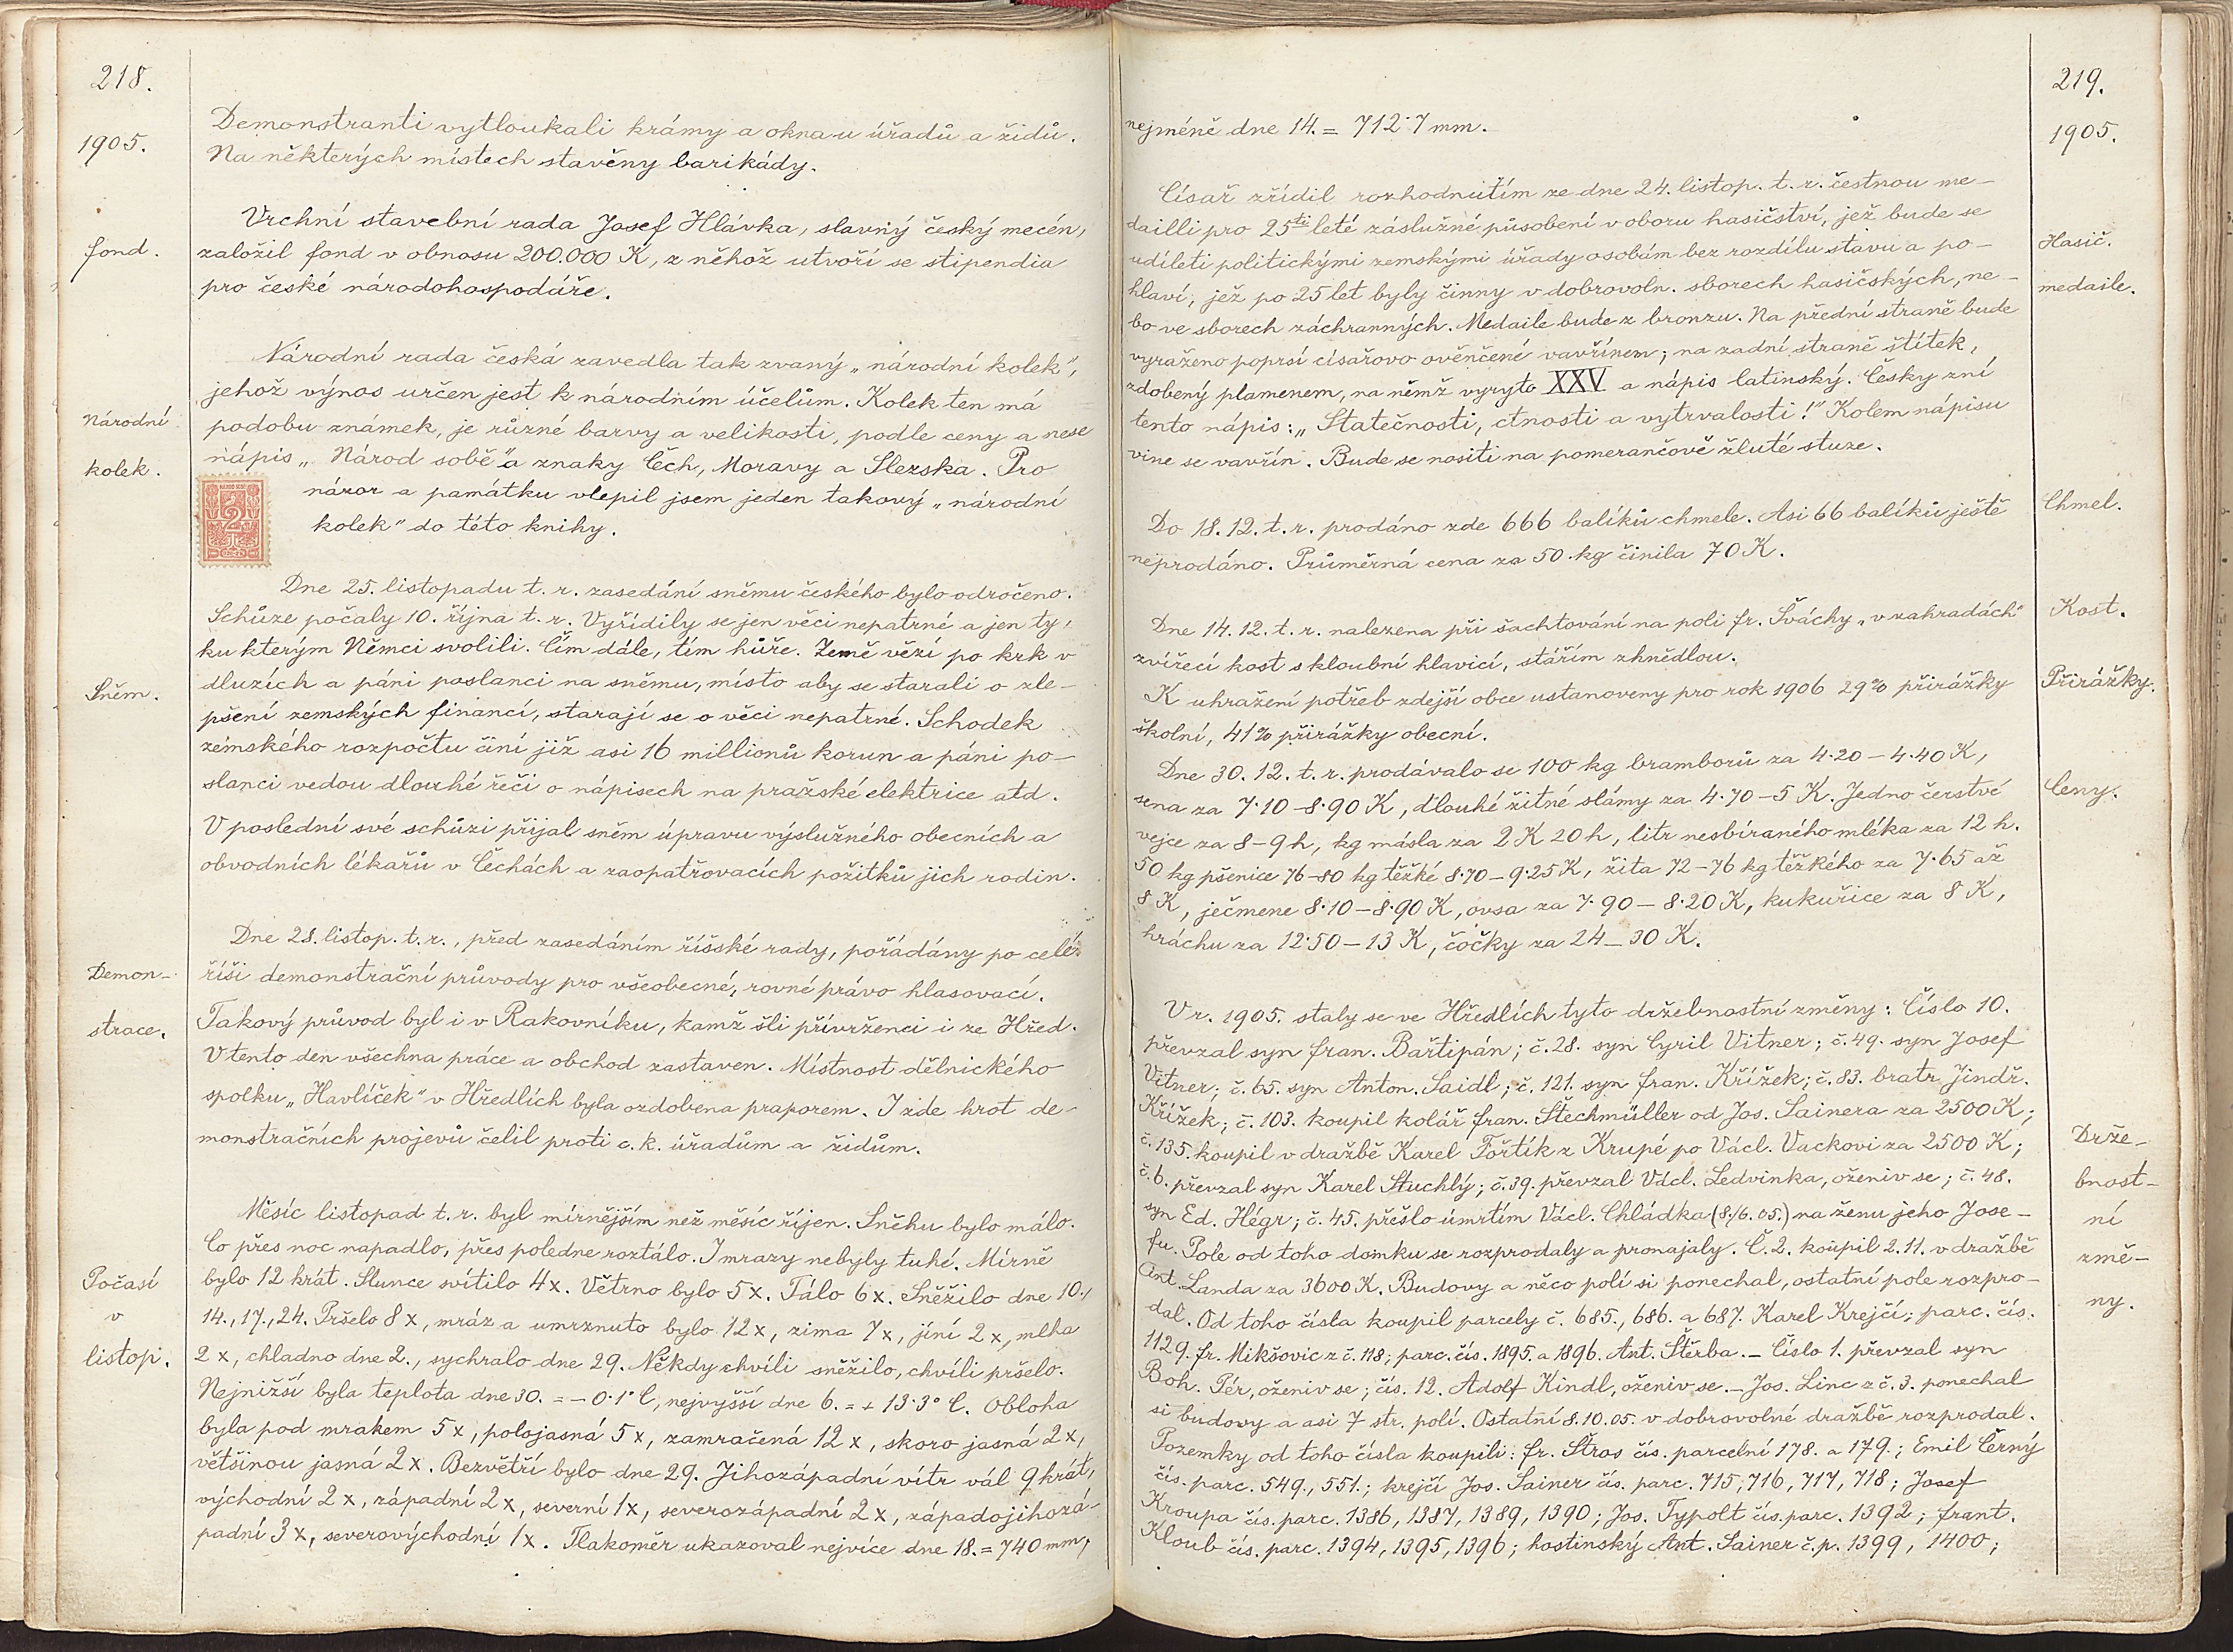 218.
1905.
Demonstranti vytloukali krámy a okna u úřadů a židů.
Na některých místech stavěny barikády.
fond.
Vrchní stavební rada Josef Hlávka, slavný český mecén,
založil fond v obnosu 200.000 K, z něhož utvoří se stipendia
pro české národohospodáře.
Národní
kolek.
Národní rada česká zavedla tak zvaný „národní kolek",
jehož výnos určen jest k národním účelům. Kolek ten má
podobu známek, je různé barvy a velikosti, podle ceny a nese
nápis „Národ sobě" a znaky Čech, Moravy a Slezska. Pro
názor a památku vlepil jsem jeden takový „národní
kolek" do této knihy.
2
Sněm.
Dne 25. listopadu t. r. zasedání sněmu českého bylo odročeno.
Schůze počaly 10. října t. r. Vyřídily se jen věci nepatrné a jen ty,
ku kterým Němci svolili. Čím dále, tím hůře. Země vězí po krk v
dluzích a páni poslanci na sněmu, místo aby se starali o zle-
pšení zemských financí, starají se o věci nepatrné. Schodek
zemského rozpočtu činí již asi 16 millionů korun a páni po-
slanci vedou dlouhé řeči o nápisech na pražské elektrice atd.
V poslední své schůzi přijal sněm úpravu výslužného obecních a
obvodních lékařů v Čechách a zaopatřovacích požitků jich rodin.
Demon-
strace.
Dne 28. listop. t. r., před zasedáním říšské rady, pořádány po celé
říši demonstrační průvody pro všeobecné, rovné právo hlasovací.
Takový průvod byl i v Rakovníku, kamž šli přívrženci i ze Hřed.
V tento den všechna práce a obchod zastaven. Místnost dělnického
spolku „Havlíček" v Hředlích byla ozdobena praporem. I zde hrot de-
monstračních projevů čelil proti c. k. úřadům a židům.
Počasí
v
listop.
Měsíc listopad t. r. byl mírnějším než měsíc říjen. Sněhu bylo málo.
Co přes noc napadlo, přes poledne roztálo. I mrazy nebyly tuhé. Mírně
bylo 12 krát. Slunce svítilo 4x. Větrno bylo 5x. Tálo 6x. Sněžilo dne 10.,
14., 17., 24. Pršelo 8x, mráz a umrznuto bylo 12x, zima 7x, jíní 2x, mlha
2x, chladno dne 2., sychralo dne 29. Někdy chvíli sněžilo, chvíli pršelo.
Nejnižší byla teplota dne 30. = - 0·1° C, nejvyšší dne 6. = + 13·3° C. Obloha
byla pod mrakem 5x, polojasná 5x, zamračená 12x, skoro jasná 2x,
většinou jasná 2x. Bezvětří bylo dne 29. Jihozápadní vítr vál 9 krát,
východní 2x, západní 2x, severní 1x, severozápadní 2x, západojihozá-
padní 3x, severovýchodní 1x. Tlakoměr ukazoval nejvíce dne 18. = 740 mm,
219.
1905.
nejméně dne 14. = 712·7 mm.
Hasič.
medaile.
Císař zřídil rozhodnutím ze dne 24. listop. t. r. čestnou me-
dailli pro 25ti leté záslužné působení v oboru hasičství, jež bude se
udíleti politickými zemskými úřady osobám bez rozdílu stavu a po-
hlaví, jež po 25 let byly činny v dobrovoln. sborech hasičských, ne-
bo ve sborech záchranných. Medaile bude z bronzu. Na přední straně bude
vyraženo poprsí císařovo ověnčené vavřínem; na zadní straně štítek,
zdobený plamenem, na němž vyryto XXV a nápis latinský. Česky zní
tento nápis: „Statečnosti, ctnosti a vytrvalosti!" Kolem nápisu
vine se vavřín. Bude se nositi na pomerančově žluté stuze.
Chmel.
Do 18. 12. t. r. prodáno zde 666 balíků chmele. Asi 66 balíků ještě
neprodáno. Průměrná cena za 50 kg činila 70 K.
Kost.
Dne 14. 12. t. r. nalezena při šachtování na poli fr. Šváchy „v zahradách"
zvířecí kost s kloubní hlavicí, stářím zhnědlou.
Přirážky.
K uhražení potřeb zdejší obce ustanoveny pro rok 1906 29% přirážky
školní, 41% přirážky obecní.
Ceny.
Dne 30. 12. t. r. prodávalo se 100 kg bramborů za 4·20 - 4·40 K,
sena za 7·10 - 8·90 K, dlouhé žitné slámy za 4·70 - 5 K. Jedno čerstvé
vejce za 8 - 9 h, kg másla za 2 K 20 h, litr nesbíraného mléka za 12 h.
50 kg pšenice 76-80 kg těžké 8·70 - 9·25 K, žita 72-76 kg těžkého za 7·65 až
8 K, ječmene 8·10 - 8·90 K, ovsa za 7·90 - 8·20 K, kukuřice za 8 K,
hráchu za 12·50 - 13 K, čočky za 24 - 30 K.
Drže-
bnost-
ní
změ-
ny.
V r. 1905. staly se ve Hředlích tyto držebnostní změny: Číslo 10.
převzal syn fran. Bařtipán; č. 28. syn Cyril Vitner; č. 49. syn Josef
Vitner; č. 65. syn Anton. Saidl; č. 121. syn fran. Křížek; č. 83. bratr Jindř.
Křížek; č. 103. koupil kolář fran. Štechmüller od Jos. Sainera za 2500 K;
č. 135. koupil v dražbě Karel Fořtík z Krupé po Václ. Vackovi za 2500 K;
č. 6. převzal syn Karel Stuchlý; č. 39. převzal Václ. Ledvinka, oženiv se; č. 48.
syn Ed. Hégr; č. 45. přešlo úmrtím Václ. Chládka (8./6. 05.) na ženu jeho Jose-
fu. Pole od toho domku se rozprodaly a pronajaly. Č. 2. koupil 2. 11. v dražbě
Ant. Landa za 3600 K. Budovy a něco polí si ponechal, ostatní pole rozpro-
dal. Od toho čísla koupil parcely č. 685., 686. a 687. Karel Krejčí; parc. čís.
1129. fr. Mikšovic z č. 118; parc. čís. 1895. a 1896. Ant. Štěrba. - Číslo 1. převzal syn
Boh. Pér, oženiv se; čís. 12. Adolf Kindl, oženiv se. - Jos. Linc z č. 3. ponechal
si budovy a asi 7 str. polí. Ostatní 8. 10. 05. v dobrovolné dražbě rozprodal.
Pozemky od toho čísla koupili: fr. Štros čís. parcelní 178. a 179.; Emil Černý
čís. parc. 549., 551.; krejčí Jos. Sainer čís. parc. 715, 716, 717, 718; Josef
Kroupa čís. parc. 1386, 1387, 1389, 1390; Jos. Typolt čís. parc. 1392; frant.
Kloub čís. parc. 1394, 1395, 1396; hostinský Ant. Sainer č. p. 1399, 1400;